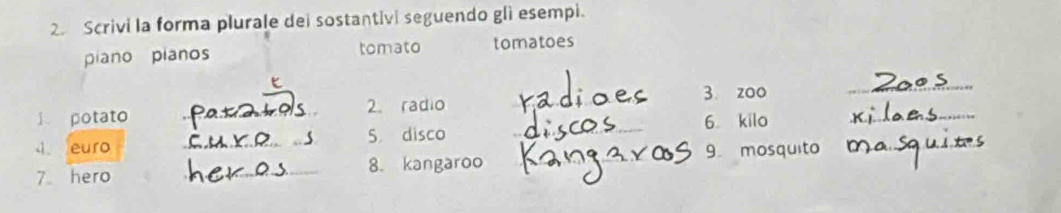 2. Scrivi la forma plurale dei sostantivi seguendo gli esempi.
piano pianos tomato tomatoes
1. potato 2. radio radioes 3. zoo Zoos
4. euro euro s 5. disco discos 6. kilo kiloes
7. hero heros 8. kangaroo Kangaroos 9. mosquito